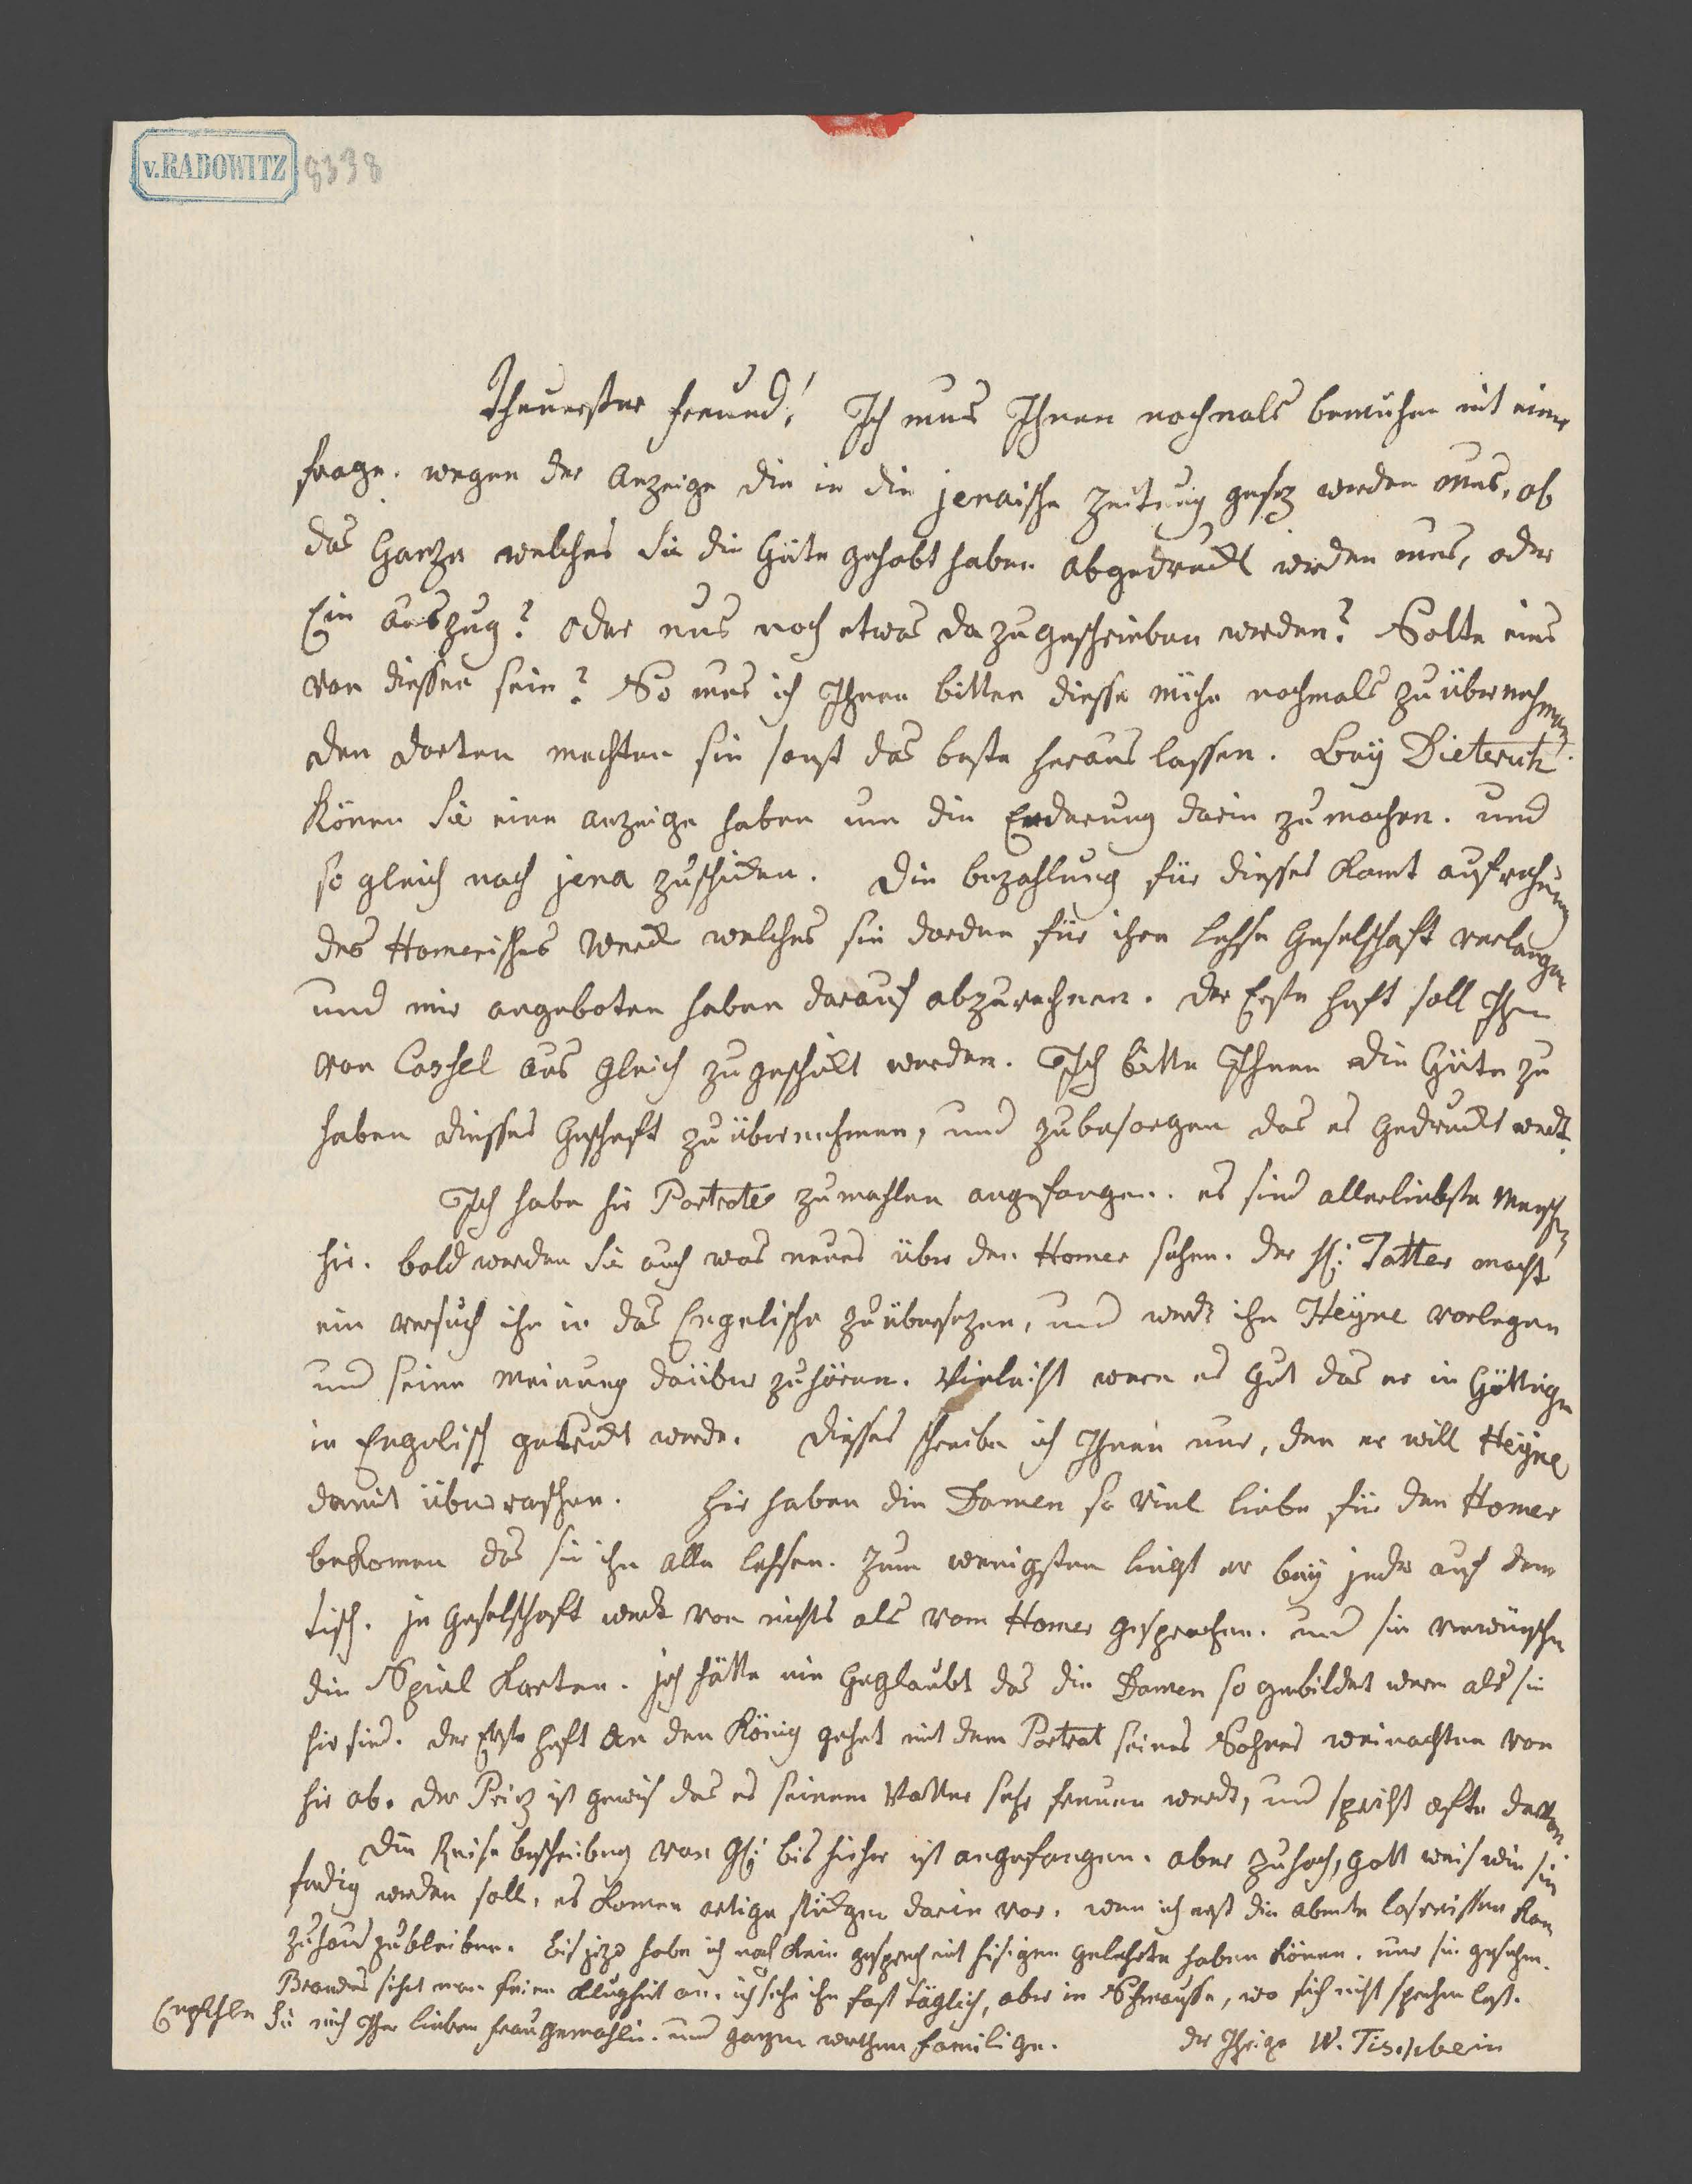 v. RADOWITZ
8338
Theuerster Freund! Ich mus Ihnen nochmals bemuhen mit einer
frage. wegen der Anzeige die in die jenaische Zeitung gesez werden mus, ob
das Ganze welches Sie die Güte gehabt haben abgedruckt werden mus, oder
Ein Auszug? oder mus noch etwas dazu geschrieben werden? Solte eins
von diessen sein? So mus ich Ihnen bitten diesse mühe nochmals zu übernehmen.
den dorten machten sie sonst das beste heraus lassen. Bey Dieterich
Könen Sie eine anzeige haben um die Enderung darin zu machen. und
so gleich nach jena zuschicken. Die bezahlung für dieses Komt auf rechnung
des Homerisches Werck welches sie dorden für ihre Lehse Geselschaft verlangen
und mir angeboten haben darauf abzurechnen. Der Erste Heft soll Ihnen
von Cassel aus gleich zu geschickt werden. Ich bitte Ihnen die Güte zu
haben diesses Geschäft zu übernehmen, und zubesorgen das es gedruckt werdt.
Ich habe hir Portrate zu mahlen angefangen. es sind allerliebste Menschen
hir. bald werden Sie auch was neues über den Homer sehen. der H: Tatter macht
ein versuch ihn in das Engelische zu übersezen, und werdt ihn Heÿne vorlegen
und seine Meinung darüber zu hören. Vieleicht were es gut das er in Göttingen
in Engelisch gedruckt werde. diesses schreibe ich Ihnen nur, den er will Heÿne
damit überraschen. Hir haben die Damen so viel liebe für den Homer
bekomen das sie ihn alle lehsen. Zum wenigsten liegt er beÿ jeder auf dem
tisch. In Geselschaft werdt von nichts als vom Homer gesprochen. und sie verwünschen
die Spiel Karten. Ich hätte nie Geglaubt das die Damen so gebildet weren als sie
hir sind. der Erste Heft an den König gehet mit dem Portrat seines Sohnes weinachten von
hir ab. der Prinz ist gewis das es seinem Vatter sehr freuen werdt, und spricht oefte davon
Die Reise beschreibung von G: bis hieher ist angefangen. aber zu hoch, Gott weis wie sie
fertig werden soll, es komen artige stückgen darin vor. wen ich erst die abente losreissen Kan
zu haus zu bleiben. Bis jezo habe ich noch kein gesprech mit hisigen gelehrte haben könen. nur sie gesehen.
Brandes sihet man seine Klugheit an. ich sehe ihn fast täglich, aber in Schmausse, wo sich nicht sprechen lest.
Empfehlen Sie mich Ihrer lieben Frau gemahlin. und ganzen werthen Familige.
der Ihrige W. Tischbein